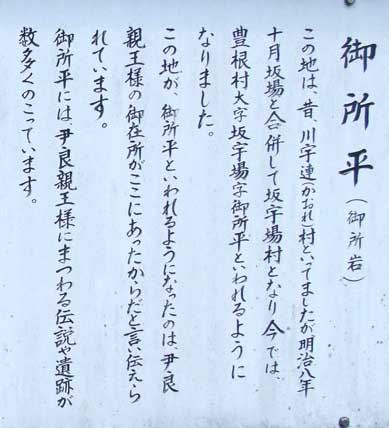 御所平(御所岩)
この地は、昔、川宇連(かおれ)村といてましたが明治八年
十月坂場と合併して坂宇場村となり今では、
豊根村大字坂宇場字御所平といわれるように
なりました。
この地が、御所平といわれるようになったのは、尹良
親王様の御在所がここにあったからだと言い伝えら
れています。
御所平には、尹良親王様にまつわる伝説や遺跡が
数多くのこっています。